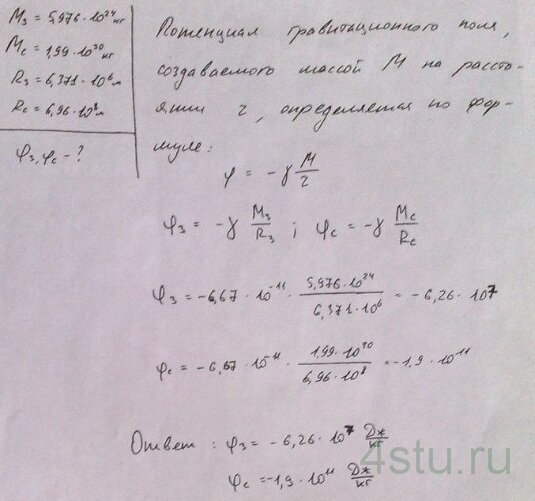 Mз = 5,976·10²⁴ кг
Mс = 1,99·10³⁰ кг
Rз = 6,371·10⁶ м
Rс = 6,96·10⁸ м
φз, φс - ?
Потенциал гравитационного поля,
создаваемого массой M на рассто-
янии r, определяется по фор-
муле:
φ = -γ M/r
φз = -γ Mз/Rз ; φс = -γ Mс/Rс
φз = -6,67·10⁻¹¹ · 5,976·10²⁴/6,371·10⁶ = -6,26·10⁷
φс = -6,67·10⁻¹¹ · 1,99·10³⁰/6,96·10⁸ = -1,9·10¹¹
Ответ : φз = -6,26·10⁷ Дж/кг
φс = -1,9·10¹¹ Дж/кг
4stu.ru